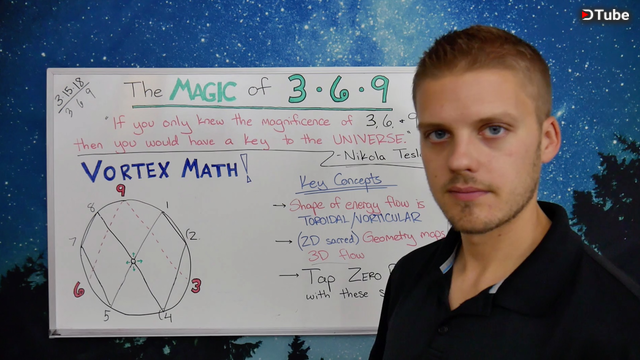 DTube
3 · 15 · 18
3 6 9
The MAGIC of 3 · 6 · 9
"If you only knew the magnificence of 3, 6, + 9
then you would have a key to the UNIVERSE."
-Nikola Tesl
VORTEX MATH!
9
8 1
7 2
6 3
5 4
Key Concepts
→ Shape of energy flow is
TOROIDAL/VORTICULAR
→ (2D sacred) Geometry maps
3D flow
→ TAP ZERO
with these